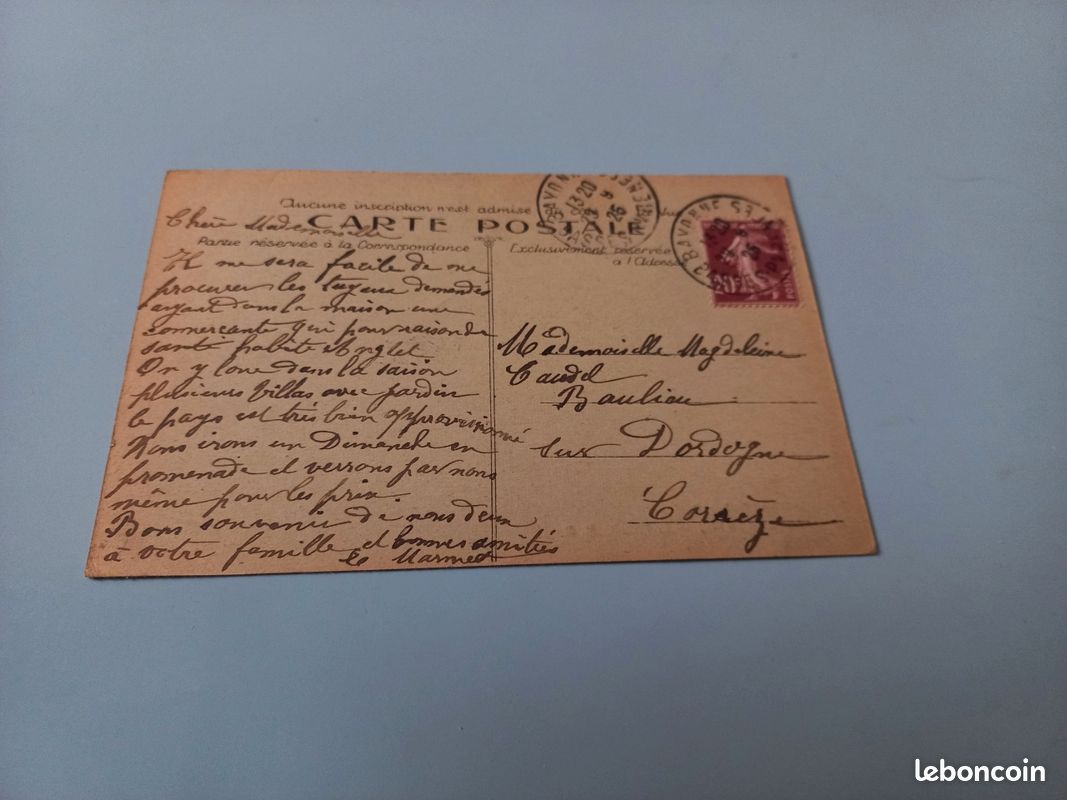 Aucune inscription n'est admise
CARTE POSTALE
Partie réservée à la Correspondance
Exclusivement réservée
à l'Adresse
Chère Mademoiselle
Il me sera facile de me
procurer les tuyaux demandés
ayant dans la maison une
commerçante qui pour raison de
santé habite Anglet
On y loue dans la saison
plusieurs villas avec jardin
le pays est très bien approvisionné
Nous irons un Dimanche en
promenade et verrons par nous
même pour les prix.
Bons souvenir de nous deux
à votre famille et bonnes amitiés
Mademoiselle Magdeleine
Baulieu
sur Dordogne
Corrèze
BAYONNE
13 20
BAYONNE
leboncoin